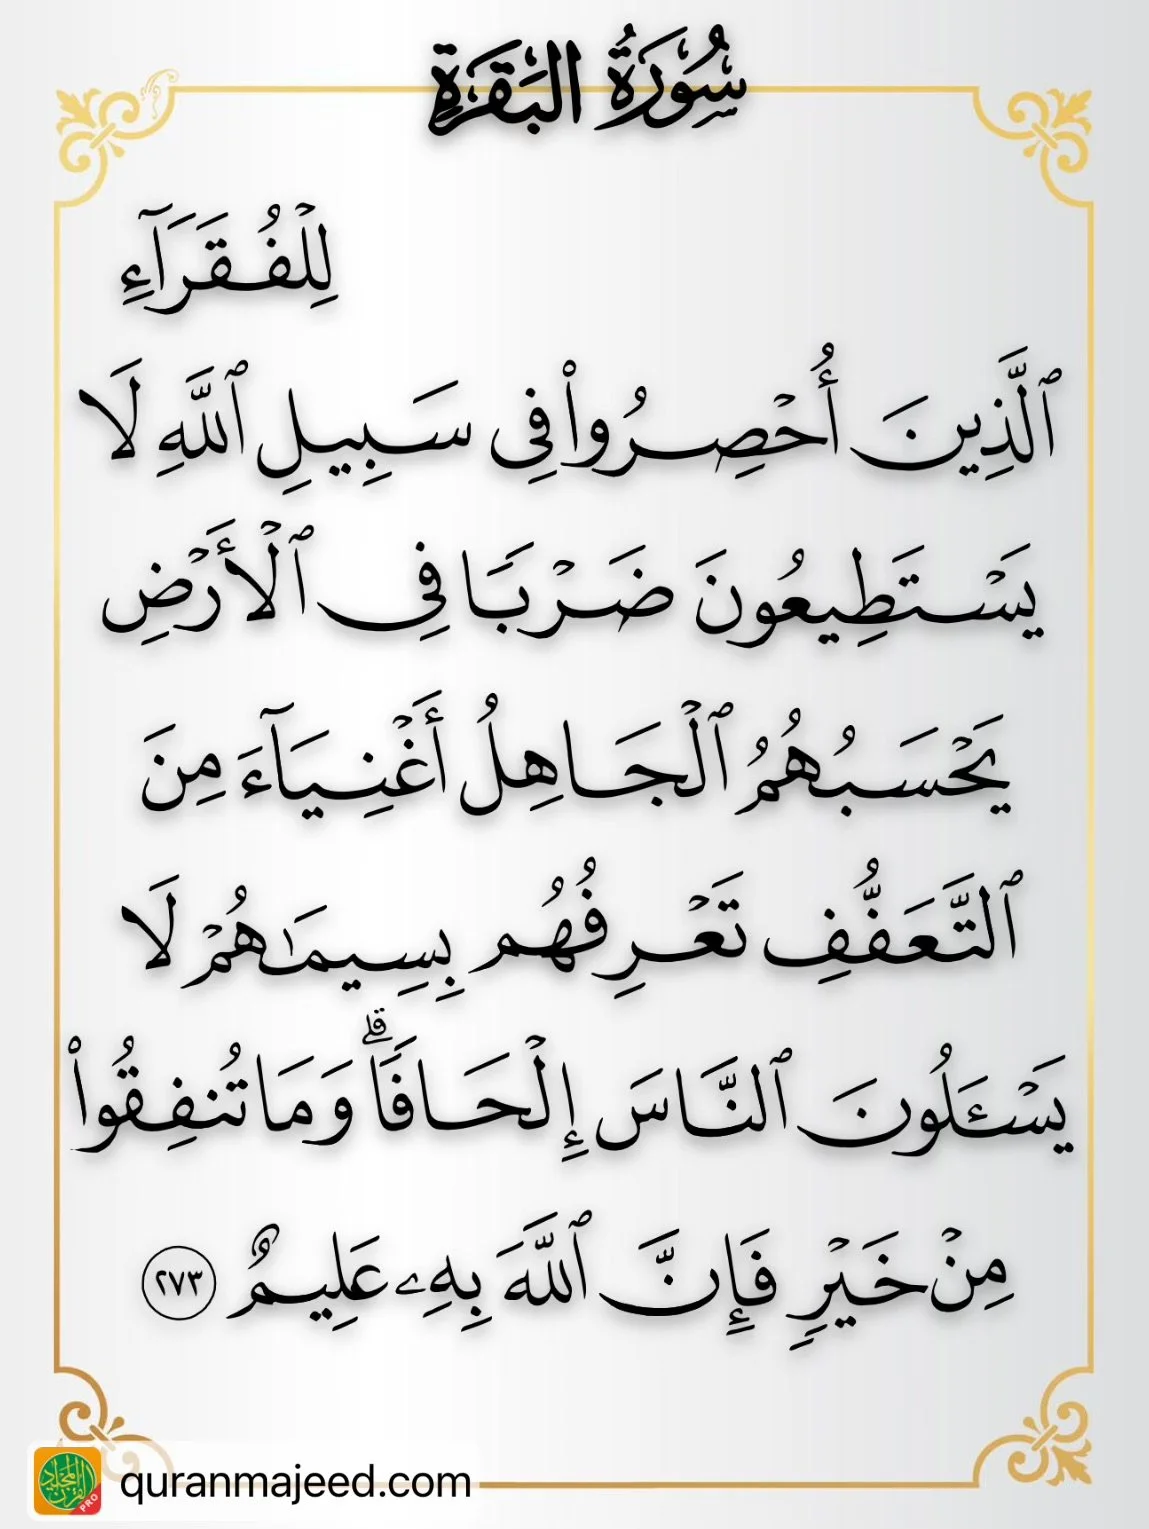 سُورَةُ البَقَرَةِ
لِلْفُقَرَآءِ
ٱلَّذِينَ أُحْصِرُوا۟ فِى سَبِيلِ ٱللَّهِ لَا
يَسْتَطِيعُونَ ضَرْبًا فِى ٱلْأَرْضِ
يَحْسَبُهُمُ ٱلْجَاهِلُ أَغْنِيَآءَ مِنَ
ٱلتَّعَفُّفِ تَعْرِفُهُم بِسِيمَـٰهُمْ لَا
يَسْـَٔلُونَ ٱلنَّاسَ إِلْحَافًا ۗ وَمَا تُنفِقُوا۟
مِنْ خَيْرٍ فَإِنَّ ٱللَّهَ بِهِۦ عَلِيمٌ ٢٧٣
quranmajeed.com